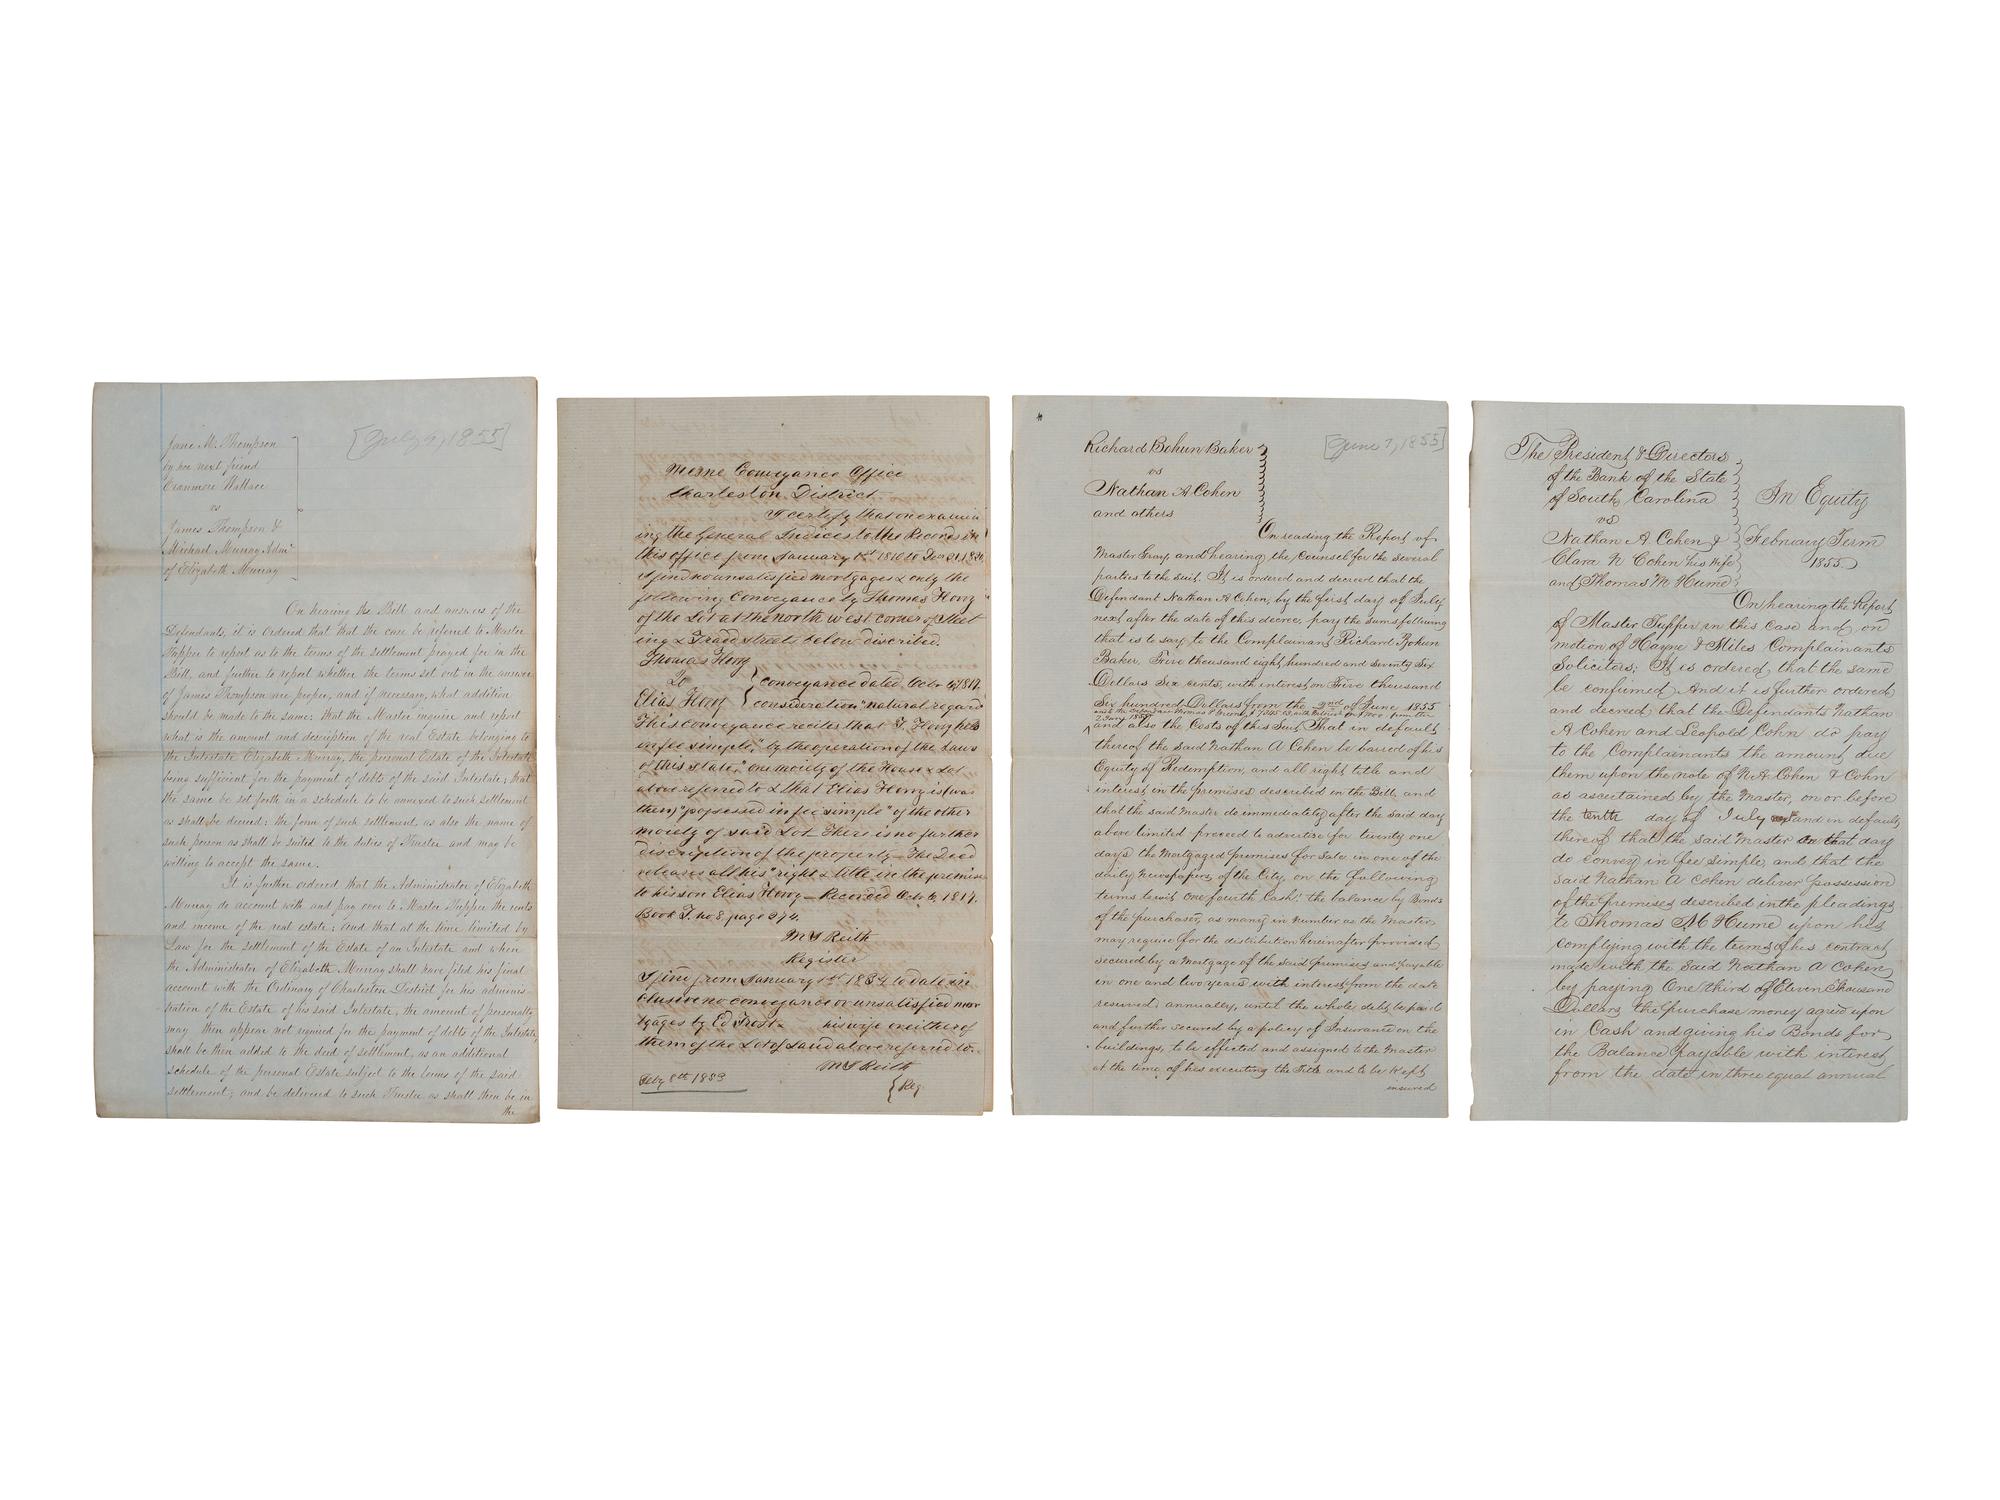 [July 6, 1855]
Jane M. Thompson
by her next friend
Cranmore Wallace
vs
James Thompson &
Michael Murray Admr
of Elizabeth Murray
On hearing the Bill and answers of the
Defendants, it is ordered that that the case be referred to Master
Tupper to report as to the terms of the settlement prayed for in the
Bill, and further to report whether the terms set out in the answer
of James Thompson are proper, and if necessary, what addition
should be made to the same; that the Master inquire and report
what is the amount and description of the real Estate belonging to
the Intestate Elizabeth Murray, the personal Estate of the Intestate
being sufficient for the payment of debts of the said Intestate; that
the same be set forth in a schedule to be annexed to such settlement
as shall be decreed; the form of such settlement, as also the name of
such person as shall be suited to the duties of Trustee and may be
willing to accept the same.
It is further ordered that the Administrator of Elizabeth
Murray do account with and pay over to Master Tupper the rents
and income of the real estate; And that at the time limited by
Law for the settlement of the Estate of an Intestate and when
the Administrator of Elizabeth Murray shall have filed his final
account with the Ordinary of Charleston District for his adminis-
tration of the Estate of his said Intestate, the amount of personalty
may then appear not required for the payment of debts of the Intestate,
shall be then added to the deed of settlement, as an additional
schedule of the personal Estate subject to the terms of the said
settlement; and be delivered to such Trustee as shall then be in
the
Mesne Conveyance Office
Charleston District
I certify that on examin
ing the General Indices to the Records in
this office from January 1st 1810 to Dec 31, 1820
I find no unsatisfied mortgages & only the
following Conveyance by Thomas Horry
of the Lot at the north west corner of Meet
ing & Tradd streets below discribed.
Thomas Horry
To
conveyance dated Octr 4, 1817.
Elias Horry
consideration "natural regard
This conveyance recites that T. Horry held
in fee simple," by the operation of the Laws
of this state," one moiety of the House & Lot
above referred to & that Elias Horry is (was
then) "possessed in fee simple" of the other
moiety of said Lot There is no further
discription of the property — The Deed
releases all his "right & title in the premises
to his son Elias Horry — Recorded Oct 6, 1817.
Book T. no 8 page 274.
M T Reith
Register
I find from January 1st 1834 to date in
clusive no conveyance or unsatisfied mor
tgages by Ed Frost & his wife or either of
them of the Lot of Land above referred to.
M T Reith
Reg
Feby 8th 1853
[June 7, 1855]
Richard Bohun Baker
vs
Nathan A Cohen
and others
On reading the Report of
Master Gray and hearing the Counsel for the several
parties to the suit. It is ordered and decreed that the
Defendant Nathan A Cohen, by the first day of July
next after the date of this decree, pay the sums following
that is to say to the Complainant Richard Bohun
Baker, Five thousand eight hundred and Seventy Six
Dollars Six cents, with interest on Five thousand
Six hundred Dollars from the 2nd of June 1855
and also the Costs of this Suit, That in default
thereof the said Nathan A Cohen be barred of his
Equity of Redemption, and all right title and
interest in the premises described in the Bill, and
that the said Master do immediately after the said day
above limited proceed to advertise for twenty one
days the Mortgaged premises for Sale, in one of the
daily Newspapers of the City, on the following
terms to wit, one fourth Cash, the balance by Bonds
of the purchaser, as many in number as the Master
may require for the distribution hereinafter provided
secured by a Mortgage of the Said premises and payable
in one and two years with interest from the date
reserved annually, until the whole debt be paid
and further secured by a policy of Insurance on the
buildings, to be effected and assigned to the Master
at the time of his executing the Title and to be kept
insured
The President & Directors
of the Bank of the State
of South Carolina
vs
Nathan A Cohen &
Clara N Cohen his wife
and Thomas M Hume
In Equity
February Term
1855
On hearing the Report
of Master Tupper in this case and on
motion of Hayne & Miles Complainants
Solicitors; It is ordered, that the same
be confirmed, And it is further ordered
and decreed that the Defendants Nathan
A Cohen and Leopold Cohn do pay
to the Complainants the amount due
them upon the note of N. A. Cohen & Cohn
as ascertained by the Master, on or before
the tenth day of July and in default
thereof that the said Master on that day
do convey in fee simple, and that the
said Nathan A Cohen deliver possession
of the premises described in the pleadings
to Thomas M Hume upon his
complying with the terms of his contract
made with the said Nathan A Cohen
by paying One third of Eleven Thousand
Dollars the purchase money agreed upon
in Cash and giving his Bonds for
the Balance payable with interest
from the date in three equal annual